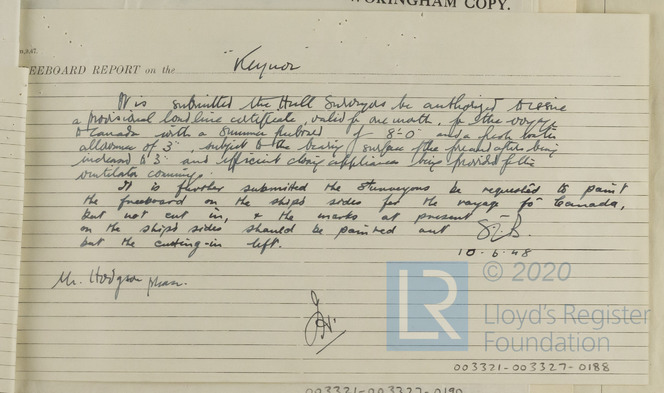 WOKINGHAM COPY.
FREEBOARD REPORT on the "Keynor"
It is submitted the Hull Surveyors be authorized to issue
a provisional load line certificate, valid for one month, for the voyage
to Canada with a Summer freeboard of 8'-0" and a fresh water
allowance of 3", subject to the bearing surface of the freeing
increased to 3" and efficient closing appliances being provided for the
ventilator coamings.
It is further submitted the Surveyors be requested to paint
the freeboard on the ship's sides for the voyage to Canada,
but not cut in, & the marks at present
on the ship's sides should be painted out
but the cutting-in left.
10.6.48
Mr. Hodgson please.
© 2020
LR
Lloyd's Register
Foundation
003321-003327-0188
003321-003327-0190